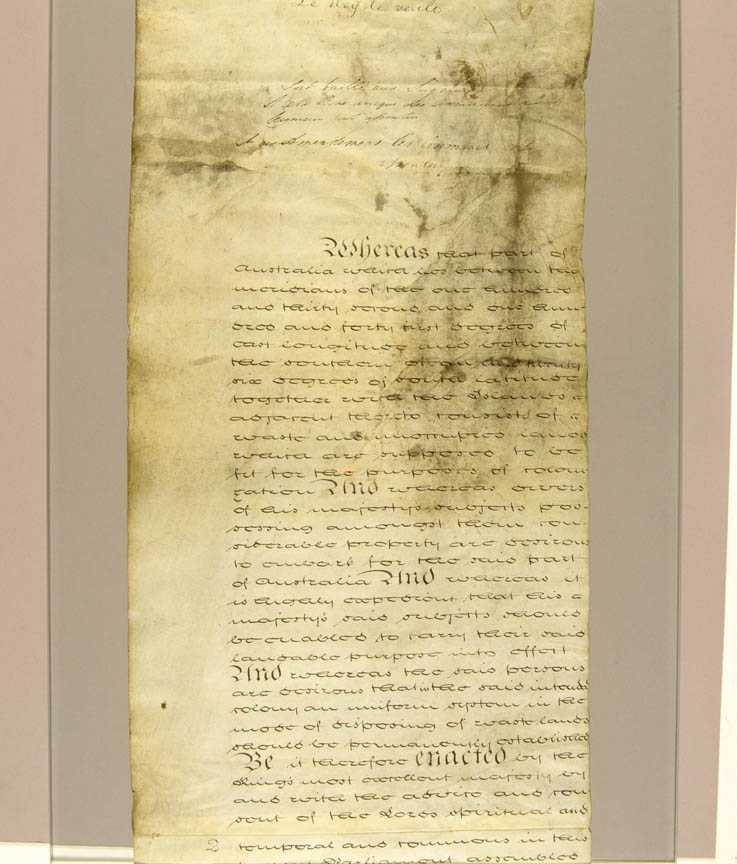 Le Roy le veult
Soit baillé aux Seigneurs
A ces Amendemens les Communes
Whereas that part of
Australia which lies between the
meridians of the one hundred
and thirty second and one hun
dred and forty first degrees of
east longitude and between
the southern ocean and twenty
six degrees of south latitude
together with the Islands
adjacent thereto consists of
waste and unoccupied lands
which are supposed to be
fit for the purposes of coloni
zation And whereas divers
of his majesty's subjects pos
sessing amongst them con
siderable property are desirous
to embark for the said part
of Australia And whereas it
is highly expedient that his
majesty's said subjects should
be enabled to carry their said
laudable purpose into effect
And whereas the said persons
are desirous that in the said intended
colony an uniform system in the
mode of disposing of waste lands
should be permanently established
Be it therefore enacted by the
Kings most excellent majesty by
and with the advice and con
sent of the Lords spiritual and
2 temporal and commons in this
Parliament assembled